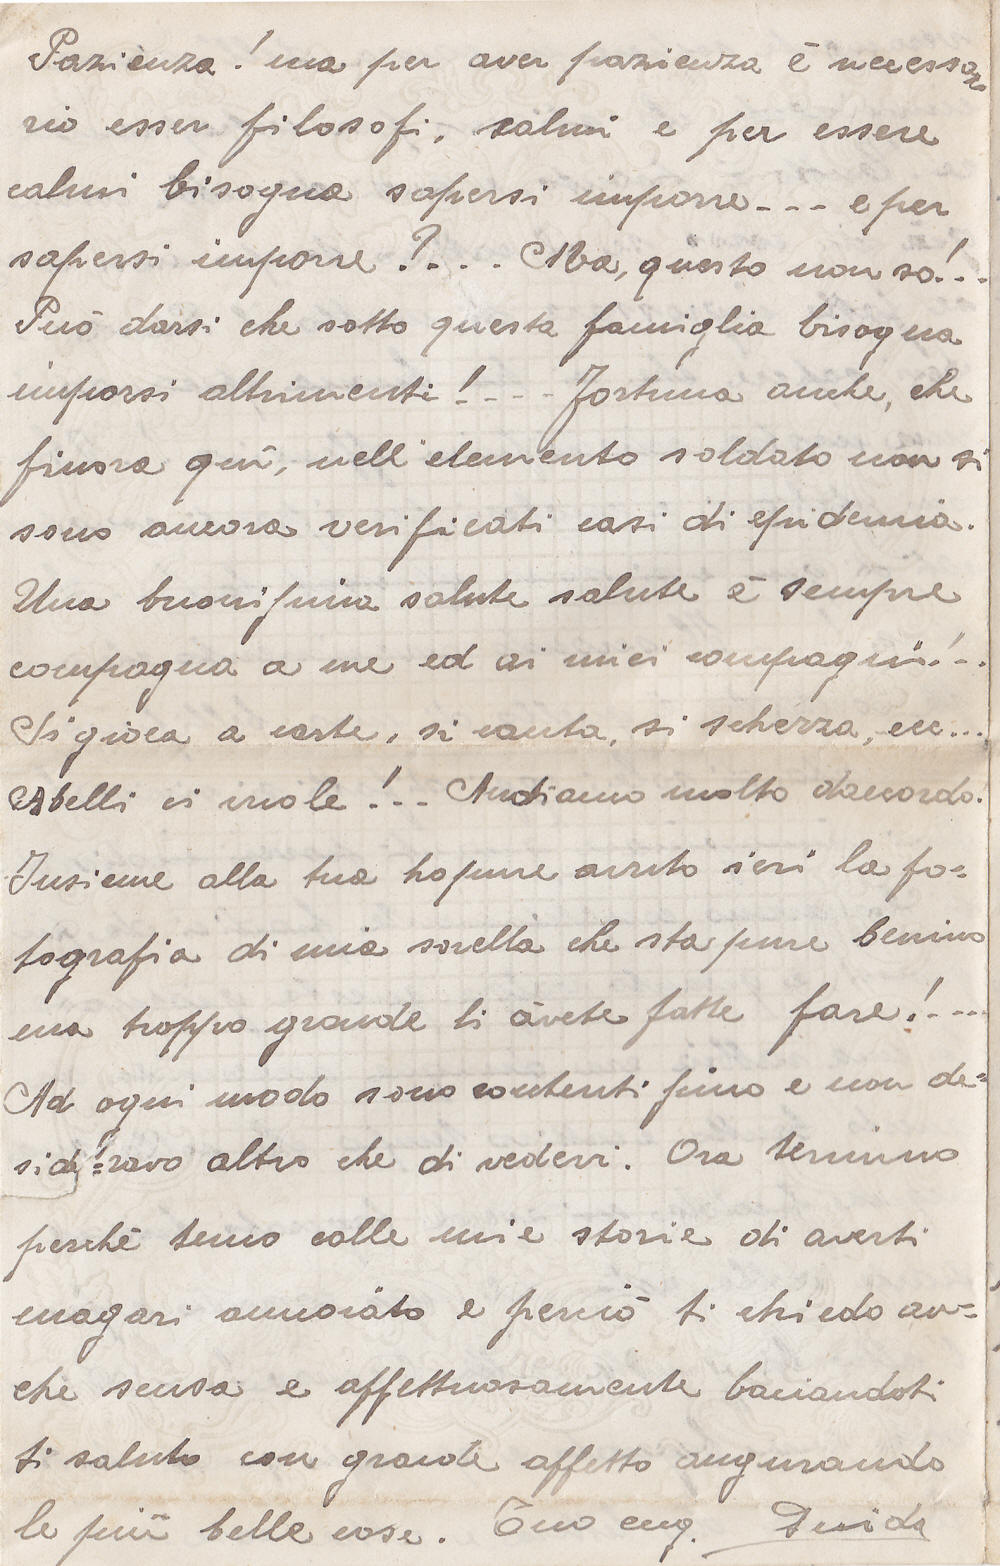 Pazienza! ma per aver pazienza è necessa=
rio esser filosofi, calmi e per essere
calmi bisogna sapersi imporre --- e per
sapersi imporre?.... Ma, questo non so!...
Può darsi che sotto questa famiglia bisogna
imporsi altrimenti!.... Fortuna anche, che
finora quì, nell'elemento soldato non si
sono ancora verificati casi di epidemia.
Una buonissima salute salute è sempre
compagna a me ed ai miei compagni!...
Si gioca a carte, si canta, si scherza, ecc...
Abelli ci vuole!... Andiamo molto daccordo.
Insieme alla tua ho pure avuto ieri la fo=
tografia di mia sorella che sta pure benino
ma troppo grande li avete fatte fare!....
Ad ogni modo sono contentissimo e non de=
side=ravo altro che di vedervi. Ora termino
perchè temo colle mie storie di averti
magari annoiato e perciò ti chiedo an=
che scusa e affettuosamente baciandoti
ti saluto con grande affetto augurando
le più belle cose. Tuo cug.